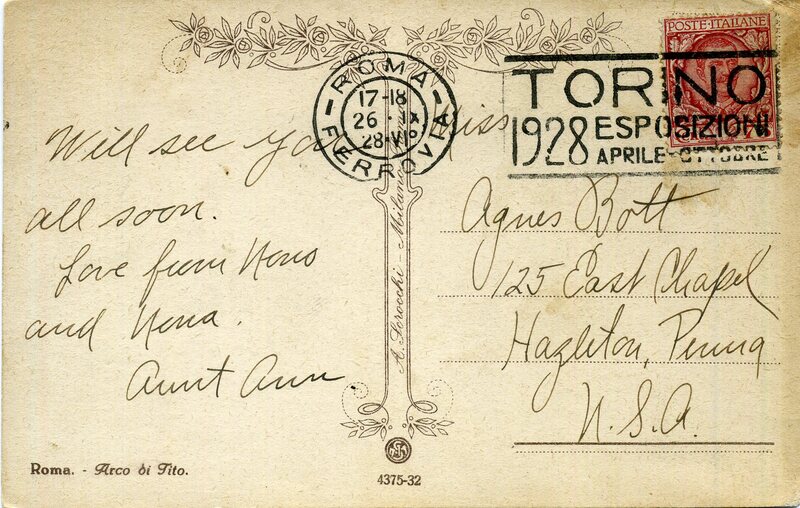 POSTE·ITALIANE
ROMA
17-18
26 · X
28·VI°
FERROVIA
TORINO
1928 ESPOSIZIONI
APRILE-OTTOBRE
Will see you
all soon.
Love from Nono
and Nona.
Aunt Ann
Miss
Agnes Bott
125 East Chapel
Hazleton, Penna
U.S.A.
A. Scrocchi - Milano
Roma. - Arco di Tito.
4375-32